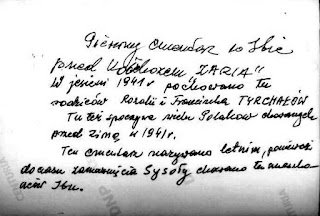 Pierwszy cmentarz w Ibie
przed Kołchozem "ZARIA"
W jesieni 1941 r pochowano tu
rodziców Rozalii i Franciszka TYRCHAŁÓW
Tu też spoczywa wielu Polaków chowanych
przed zimą w 1941 r.
Ten cmentarz nazywano letnim, ponieważ
do czasu zamarznięcia Sysoły chowano tu